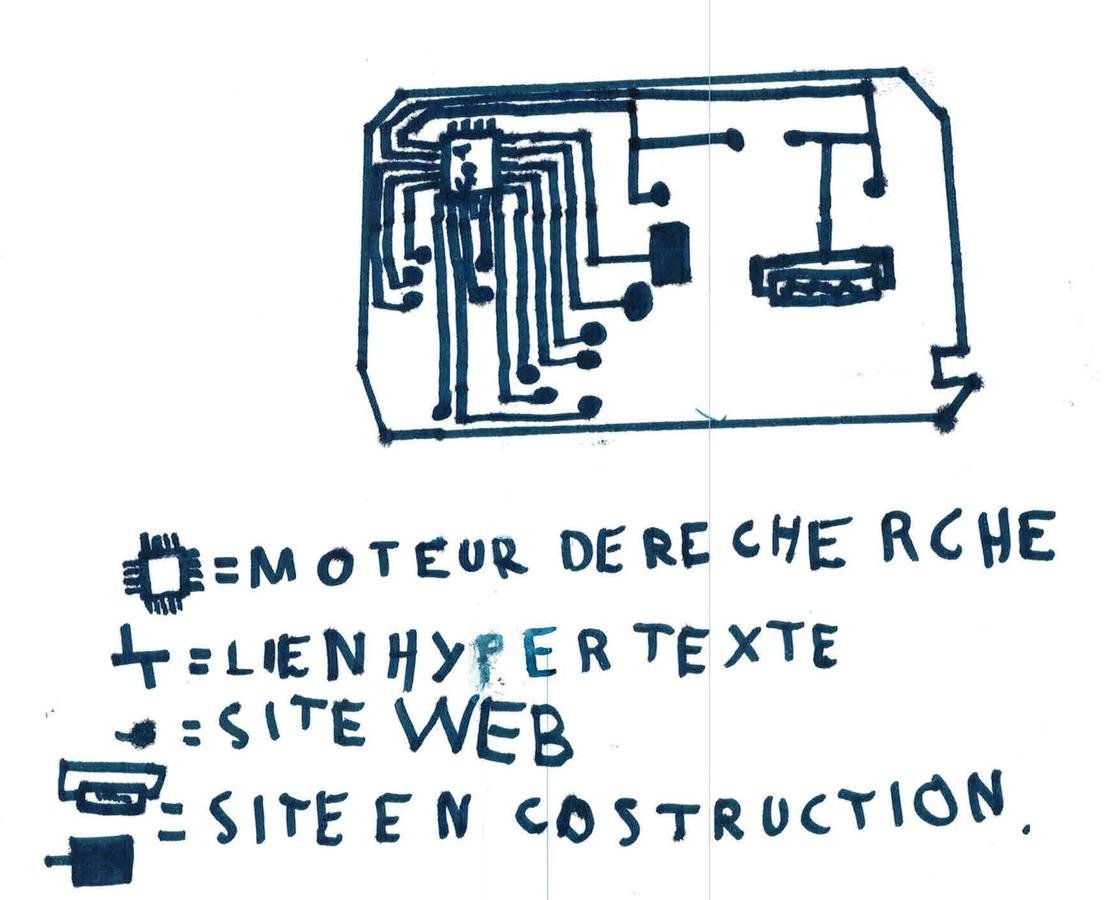 = MOTEUR DE RECHERCHE
= LIEN HYPERTEXTE
= SITE WEB
= SITE EN COSTRUCTION.